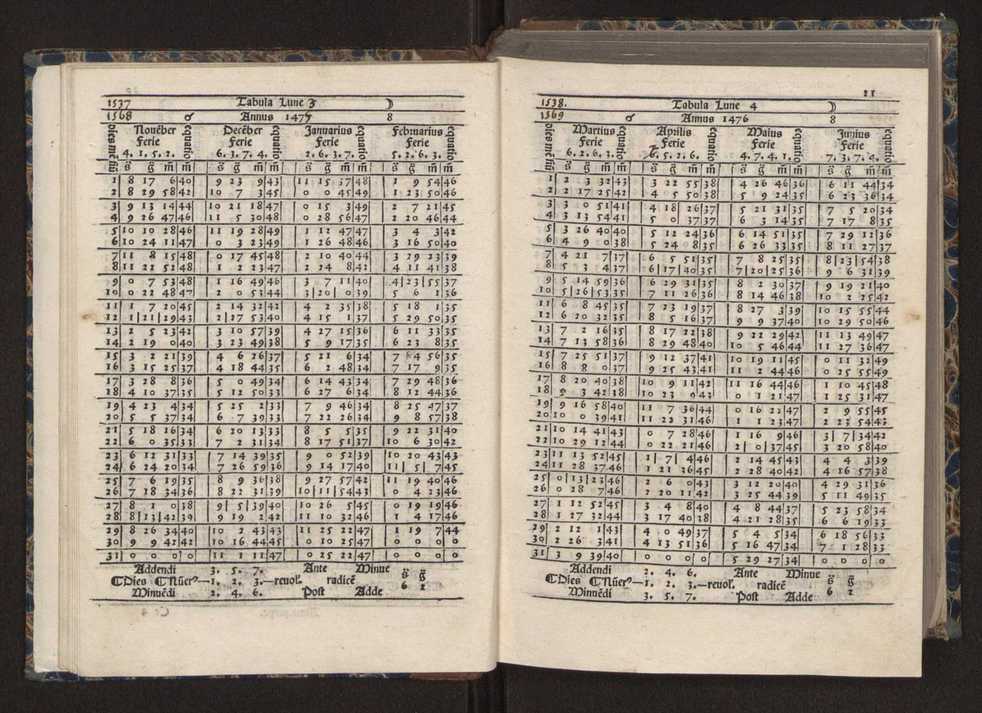 1537 Tabula Lune 3 ☽
1568 ♂ Annus 1475 8
dies mēsiū Nouēber equatio Decēber equatio Januarius equatio Februarius equatio
Ferie Ferie Ferie Ferie
4. 1. 5. 2. 6. 3. 7. 4. 2. 6. 3. 7. 5. 2. 6. 3.
s̄ ḡ m̄ m̄ s̄ ḡ m̄ m̄ s̄ ḡ m̄ m̄ s̄ ḡ m̄ m̄
1 8 17 6 40 9 23 9 43 11 15 37 48 1 9 54 46
2 8 29 58 42 10 7 3 45 0 0 45 49 1 23 50 46
3 9 13 14 44 10 21 18 47 0 15 3 49 2 7 21 45
4 9 26 47 46 11 5 30 48 0 28 56 47 2 20 46 44
5 10 10 28 46 11 19 28 49 1 12 47 47 3 4 3 42
6 10 24 11 47 0 3 23 49 1 26 48 46 3 16 50 40
7 11 8 15 48 0 17 45 48 2 10 40 44 3 29 23 39
8 11 21 52 48 1 2 23 47 2 24 8 42 4 11 41 38
9 0 7 53 48 1 16 49 46 3 7 11 40 4 23 55 37
10 0 22 48 47 2 0 53 44 3 20 0 39 5 6 1 36
11 1 7 20 45 2 14 32 42 4 2 35 38 5 18 1 35
12 1 21 29 43 2 27 53 40 4 15 1 37 5 29 50 35
13 2 5 23 42 3 10 57 39 4 27 15 36 6 11 33 35
14 2 19 0 40 3 23 49 38 5 9 17 35 6 23 8 35
15 3 2 21 39 4 6 26 37 5 21 6 34 7 4 56 35
16 3 15 25 37 4 18 44 35 6 2 48 34 7 17 9 35
17 3 28 8 36 5 0 49 34 6 14 43 34 7 29 48 36
18 4 10 37 35 5 12 50 33 6 27 6 34 8 12 44 36
19 4 23 4 34 5 25 2 33 7 9 46 34 8 25 47 37
20 5 5 37 34 6 7 39 33 7 22 26 34 9 8 57 38
21 5 18 16 34 6 20 13 33 8 5 5 35 9 22 31 40
22 6 0 35 33 7 2 31 34 8 17 51 37 10 6 30 42
23 6 12 31 33 7 14 39 35 9 0 52 39 10 20 43 43
24 6 24 20 34 7 26 59 36 9 14 17 40 11 5 7 45
25 7 6 19 35 8 9 36 38 9 27 57 42 11 19 40 46
26 7 18 34 36 8 22 31 39 10 11 54 43 0 4 23 46
27 8 1 0 38 9 5 39 40 10 26 5 45 0 19 19 46
28 8 13 42 39 9 19 2 42 11 10 32 46 1 4 17 46
29 8 26 34 40 10 2 43 43 11 25 22 47 1 19 7 44
30 9 9 42 42 10 16 44 45 0 10 25 47 0 0 0 0
31 0 0 0 0 11 1 11 47 0 25 22 47 0 0 0 0
Addendi 3. 5. 7. Ante Minue s̄ ḡ
Dies Nūer 1. 2. 3. reuol. radicē
Minuēdi 2. 4. 6. Post Adde 6 2
21
1538. Tabula Lune 4 ☽
1569 ♂ Annus 1476 8
dies mēsiū Martius equatio Aprilis equatio Maius equatio Junius equatio
Ferie Ferie Ferie Ferie
6. 2. 6. 3. 5. 2. 6. 4. 7. 4. 1. 7. 3. 7. 4.
s̄ ḡ m̄ m̄ s̄ ḡ m̄ m̄ s̄ ḡ m̄ m̄ s̄ ḡ m̄ m̄
1 2 3 32 43 3 22 55 38 4 26 46 36 6 11 44 34
2 2 17 25 42 4 5 50 38 5 9 24 35 6 23 36 34
3 3 0 51 41 4 18 26 37 5 21 31 35 7 5 20 34
4 3 13 54 41 5 0 37 37 6 3 14 35 7 17 8 35
5 3 26 40 40 5 12 24 36 6 14 51 35 7 29 12 36
6 4 9 0 38 5 24 8 35 6 26 33 35 8 11 27 37
7 4 21 7 37 6 5 51 35 7 8 25 35 8 23 54 38
8 5 3 4 37 6 17 40 35 7 20 25 36 9 6 31 39
9 5 14 59 36 6 29 31 35 8 2 30 37 9 19 21 40
10 5 26 53 35 7 11 26 36 8 14 46 38 10 2 25 42
11 6 8 45 35 7 23 19 37 8 27 3 39 10 15 55 44
12 6 20 32 35 8 5 16 37 9 9 37 40 10 29 50 46
13 7 2 16 35 8 17 22 38 9 22 29 42 11 13 49 47
14 7 13 58 36 8 29 48 40 10 5 46 44 11 27 36 47
15 7 25 51 37 9 12 37 41 10 19 11 45 0 11 32 49
16 8 8 0 37 9 25 43 41 11 2 44 46 0 25 55 49
17 8 20 40 38 10 9 11 42 11 16 44 46 1 10 45 48
18 9 3 42 18 10 23 0 43 0 1 21 47 1 25 31 47
19 9 16 58 40 11 7 36 44 0 16 22 47 2 9 55 45
20 10 0 39 41 11 22 31 46 1 1 23 47 2 23 54 43
21 10 14 41 43 0 7 28 46 1 16 9 46 3 7 34 42
22 10 29 12 44 0 22 21 46 2 0 37 45 3 20 58 40
23 11 13 52 45 1 7 4 46 2 14 45 43 4 4 3 39
24 11 28 37 46 1 21 26 45 2 28 40 42 4 16 57 38
25 0 13 23 46 2 6 0 43 3 12 20 40 4 29 31 36
26 0 28 7 46 2 20 11 42 3 25 44 39 5 11 49 35
27 1 12 52 45 3 4 8 40 4 8 44 37 5 23 58 34
28 1 27 32 44 3 17 40 38 4 21 28 35 6 6 19 33
29 2 12 1 43 4 0 49 37 5 4 5 34 6 18 56 33
30 2 26 3 41 4 13 51 36 5 16 47 34 7 1 28 33
31 3 9 39 40 0 0 0 0 5 29 27 34 0 0 0 0
Addendi 2. 4. 6. Ante Minue s̄ ḡ
Dies Nūer 1. 2. 3. reuol. radicē
Minuēdi 3. 5. 7. Post Adde 6 2